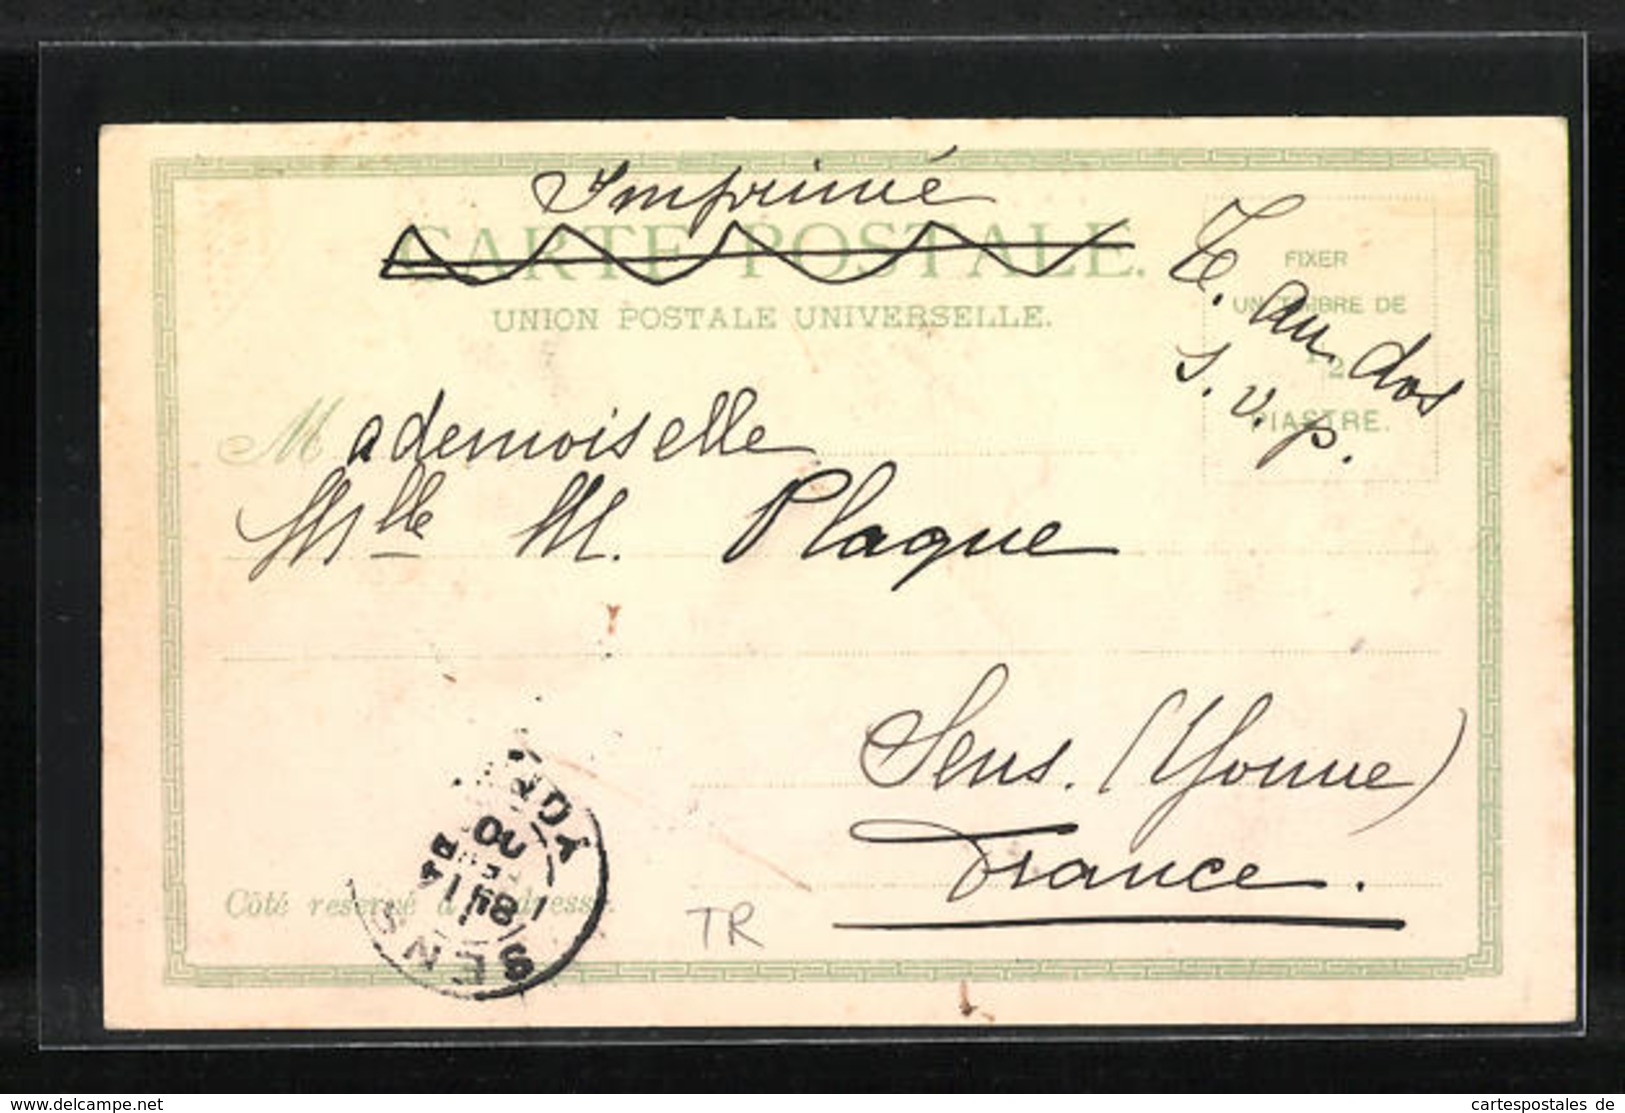 Imprimé
CARTE POSTALE.
UNION POSTALE UNIVERSELLE.
FIXER
UN TIMBRE DE
1/2
PIASTRE.
T. au dos
S. v. p.
Mademoiselle
Mlle M. Plaque
Sens. (Yonne)
France.
Côté reservé à l'adresse.
SENS
YONNE
TR
www.delcampe.net
cartespostales de